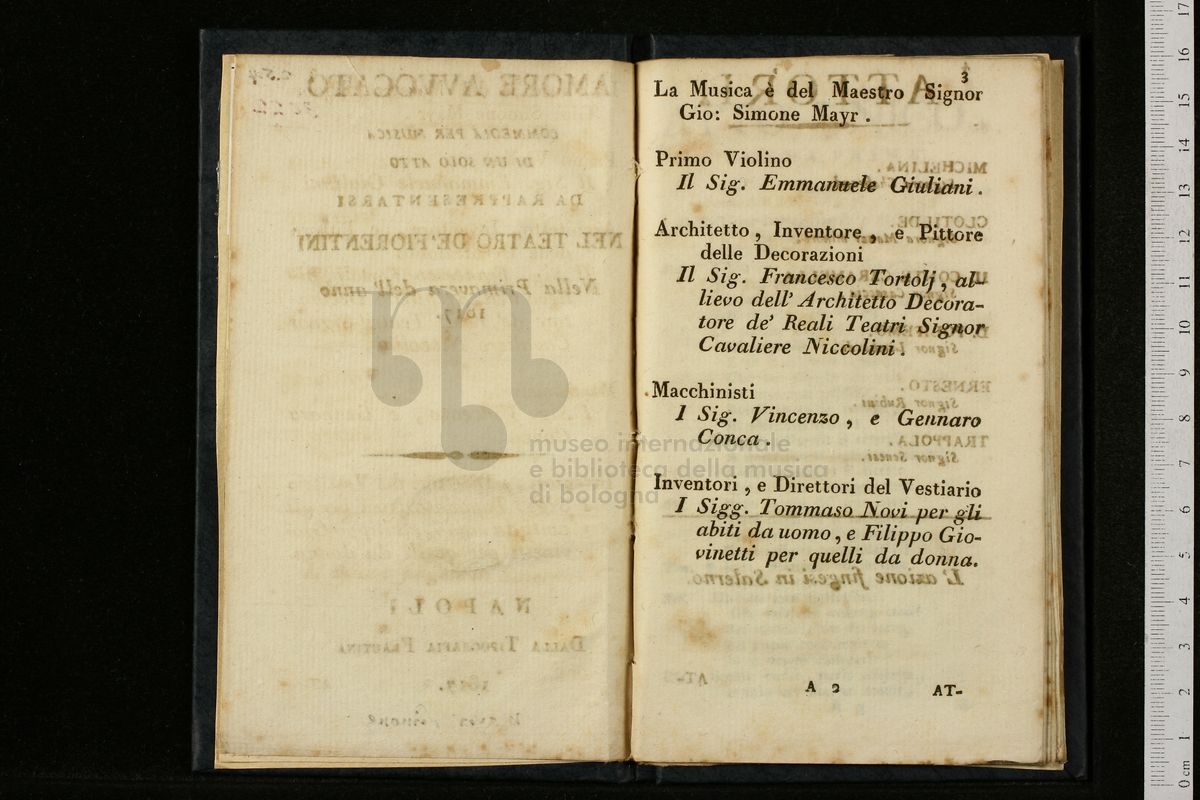 3
La Musica è del Maestro Signor
Gio: Simone Mayr .
Primo Violino
Il Sig. Emmanuele Giuliani .
Architetto , Inventore , e Pittore
delle Decorazioni
Il Sig. Francesco Tortolj , al-
lievo dell' Architetto Decora-
tore de' Reali Teatri Signor
Cavaliere Niccolini .
Macchinisti
I Sig. Vincenzo , e Gennaro
Conca .
Inventori , e Direttori del Vestiario
I Sigg. Tommaso Novi per gli
abiti da uomo , e Filippo Gio-
vinetti per quelli da donna.
A 2
AT-
museo internazionale
e biblioteca della musica
di bologna
0 cm 1 2 3 4 5 6 7 8 9 10 11 12 13 14 15 16 17